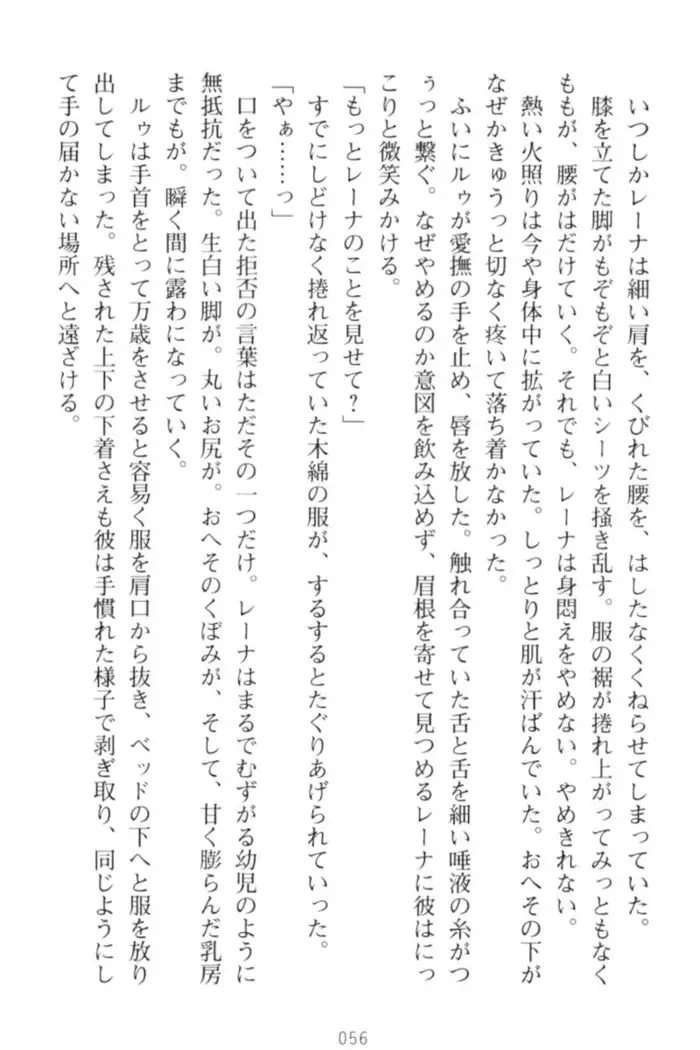 いつしかレーナは細い肩を、くびれた腰を、はしたなくくねらせてしまっていた。
膝を立てた脚がもぞもぞと白いシーツを掻き乱す。服の裾が捲れ上がってみっともなく
ももが、腰がはだけていく。それでも、レーナは身悶えをやめない。やめきれない。
熱い火照りは今や身体中に拡がっていた。しっとりと肌が汗ばんでいた。おへその下が
なぜかきゅうっと切なく疼いて落ち着かなかった。
ふいにルゥが愛撫の手を止め、唇を放した。触れ合っていた舌と舌を細い唾液の糸がつ
ぅっと繋ぐ。なぜやめるのか意図を飲み込めず、眉根を寄せて見つめるレーナに彼はにっ
こりと微笑みかける。
「もっとレーナのことを見せて?」
すでにしどけなく捲れ返っていた木綿の服が、するするとたぐりあげられていった。
「やぁ……っ」
口をついて出た拒否の言葉はただその一つだけ。レーナはまるでむずがる幼児のように
無抵抗だった。生白い脚が。丸いお尻が。おへそのくぼみが、そして、甘く膨らんだ乳房
までもが。瞬く間に露わになっていく。
ルゥは手首をとって万歳をさせると容易く服を肩口から抜き、ベッドの下へと服を放り
出してしまった。残された上下の下着さえも彼は手慣れた様子で剥ぎ取り、同じようにし
て手の届かない場所へと遠ざける。
056